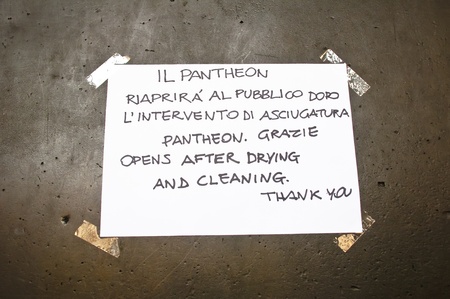 IL PANTHEON
RIAPRIRÁ AL PUBBLICO DOPO
L'INTERVENTO DI ASCIUGATURA
PANTHEON. GRAZIE
OPENS AFTER DRYING
AND CLEANING.
THANK YOU